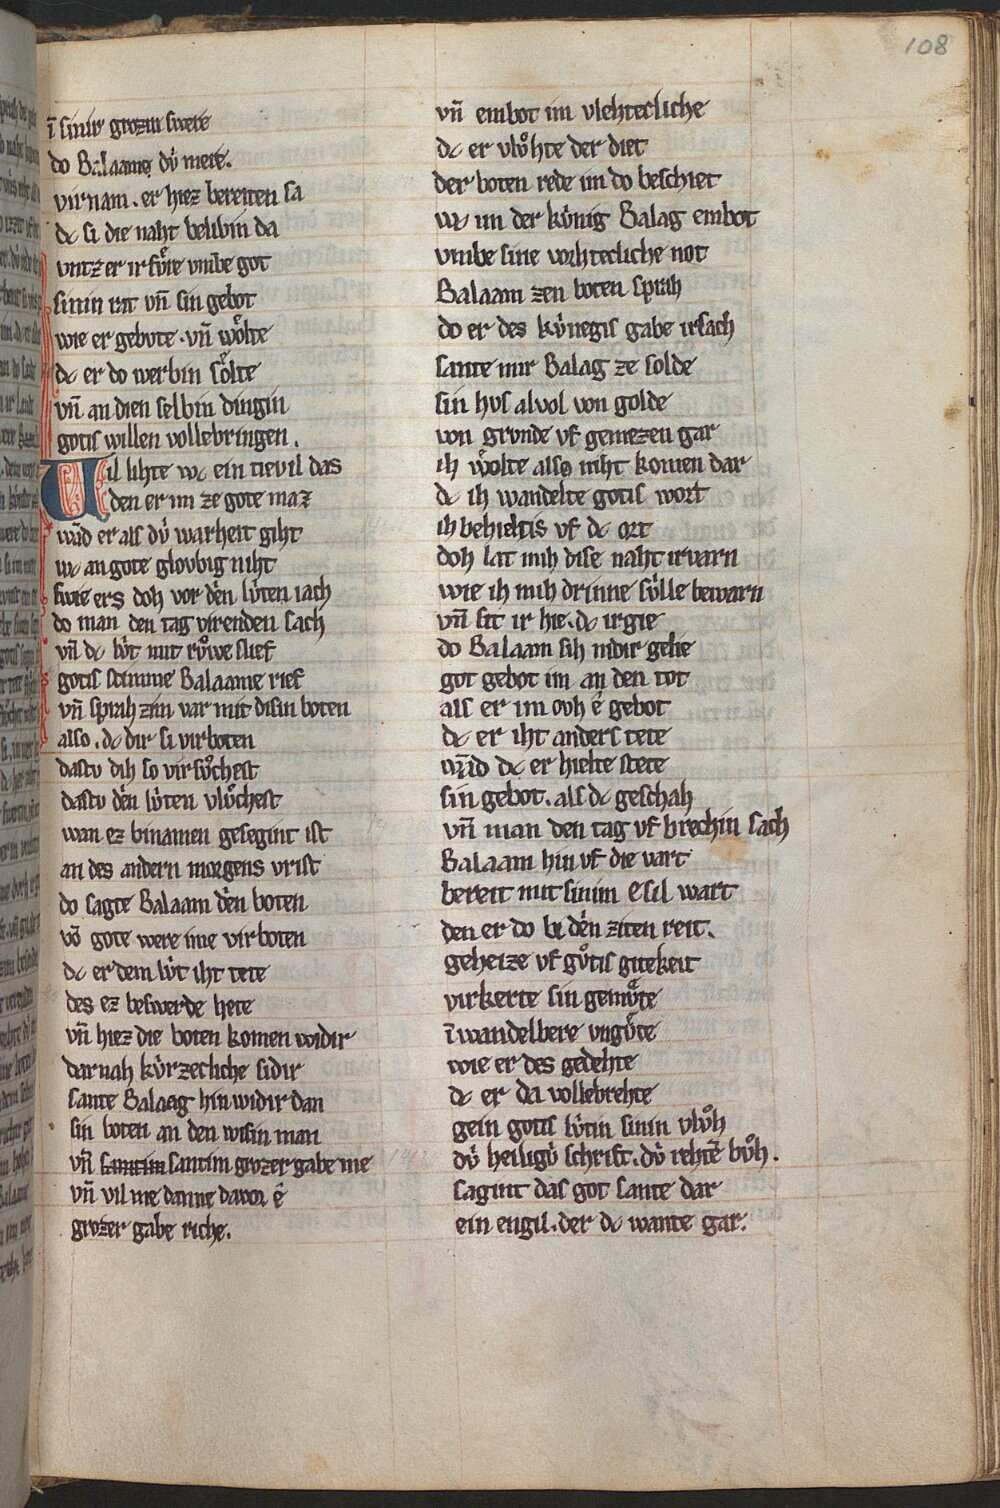 108
ī sinir grozin swere
do Balaame dv́ mere.
virnam. er hiez bereiten sa
dc si die naht belibin da
vntz er irfv̊re vmbe got
sinin rat vn̄ sin gebot
wie er gebvte. vn̄ wo̊lte
dc er do werbin so̊lte
vn̄ an dien selbin dingin
gotis willen vollebringen.
Uil lihte wc ein tievil das
den er im ze gote maz
wād er als dv́ warheit giht
wc an gote glovbig niht
swie ers doh vor dēn lv́ten iach
do man den tag virenden sach
vn̄ dc lv́t mit rv̊we slief
gotis stimme Balaame rief
vn̄ sprah zim var mit disin boten
also. dc dir si virboten
dastv dih so virsv̊chest
dastv dēn lv́ten vlv̊chest
wan ez binamen gesegint ist
an des andern morgens vrist
do sagte Balaam dēn boten
vō gote were ime virboten
dc er dem lv́t iht tete
des ez beswerde hete
vn̄ hiez die boten komen widir
darnah kv́rzecliche sidir
sante Balaag hin widir dan
sin boten an den wisin man
vn̄ santim santim grozer gabe me
vn̄ vil me danne davor ê
grozer gabe riche.
vn̄ embot im vlehtecliche
dc er vlv̊hte der diet
der boten rede im do beschiet
wc im der kv́nig Balag embot
vmbe sine vorhtecliche not
Balaam zen boten sprah
do er des kv́negis gabe irsach
sante mir Balag ze solde
sin hvs alvol von golde
von grvnde vf gemezen gar
ih wo̊lte also niht komen dar
dc ih wandelte gotis wort
ih behieltis vf dc ort
doh lat mih dise naht irvarn
wie ih mih drinne sv́lle bewarn
vn̄ sit ir hie. dc irgie
do Balaam sih nidir gehe
got gebot im an den tot
als er im ovh ê gebot
dc er iht anders tete
wād dc er hielte stete
sin gebot. als dc geschah
vn̄ man den tag vf brechin sach
Balaam hin vf die vart
bereit mit sinim esil wart
den er do bi dēn ziten reit.
geheize vf gv̊tis gitekeit
virkerte sin gemv̊te
ī wandelbere vngv̊te
wie er des gedehte
dc er da vollebrehte
gein gotis lv́tin sinin vlv̊h
dv́ heiligv́ schrift. dv́ rehtē bv̊h.
sagint das got sante dar
ein engil. der dc wante gar.